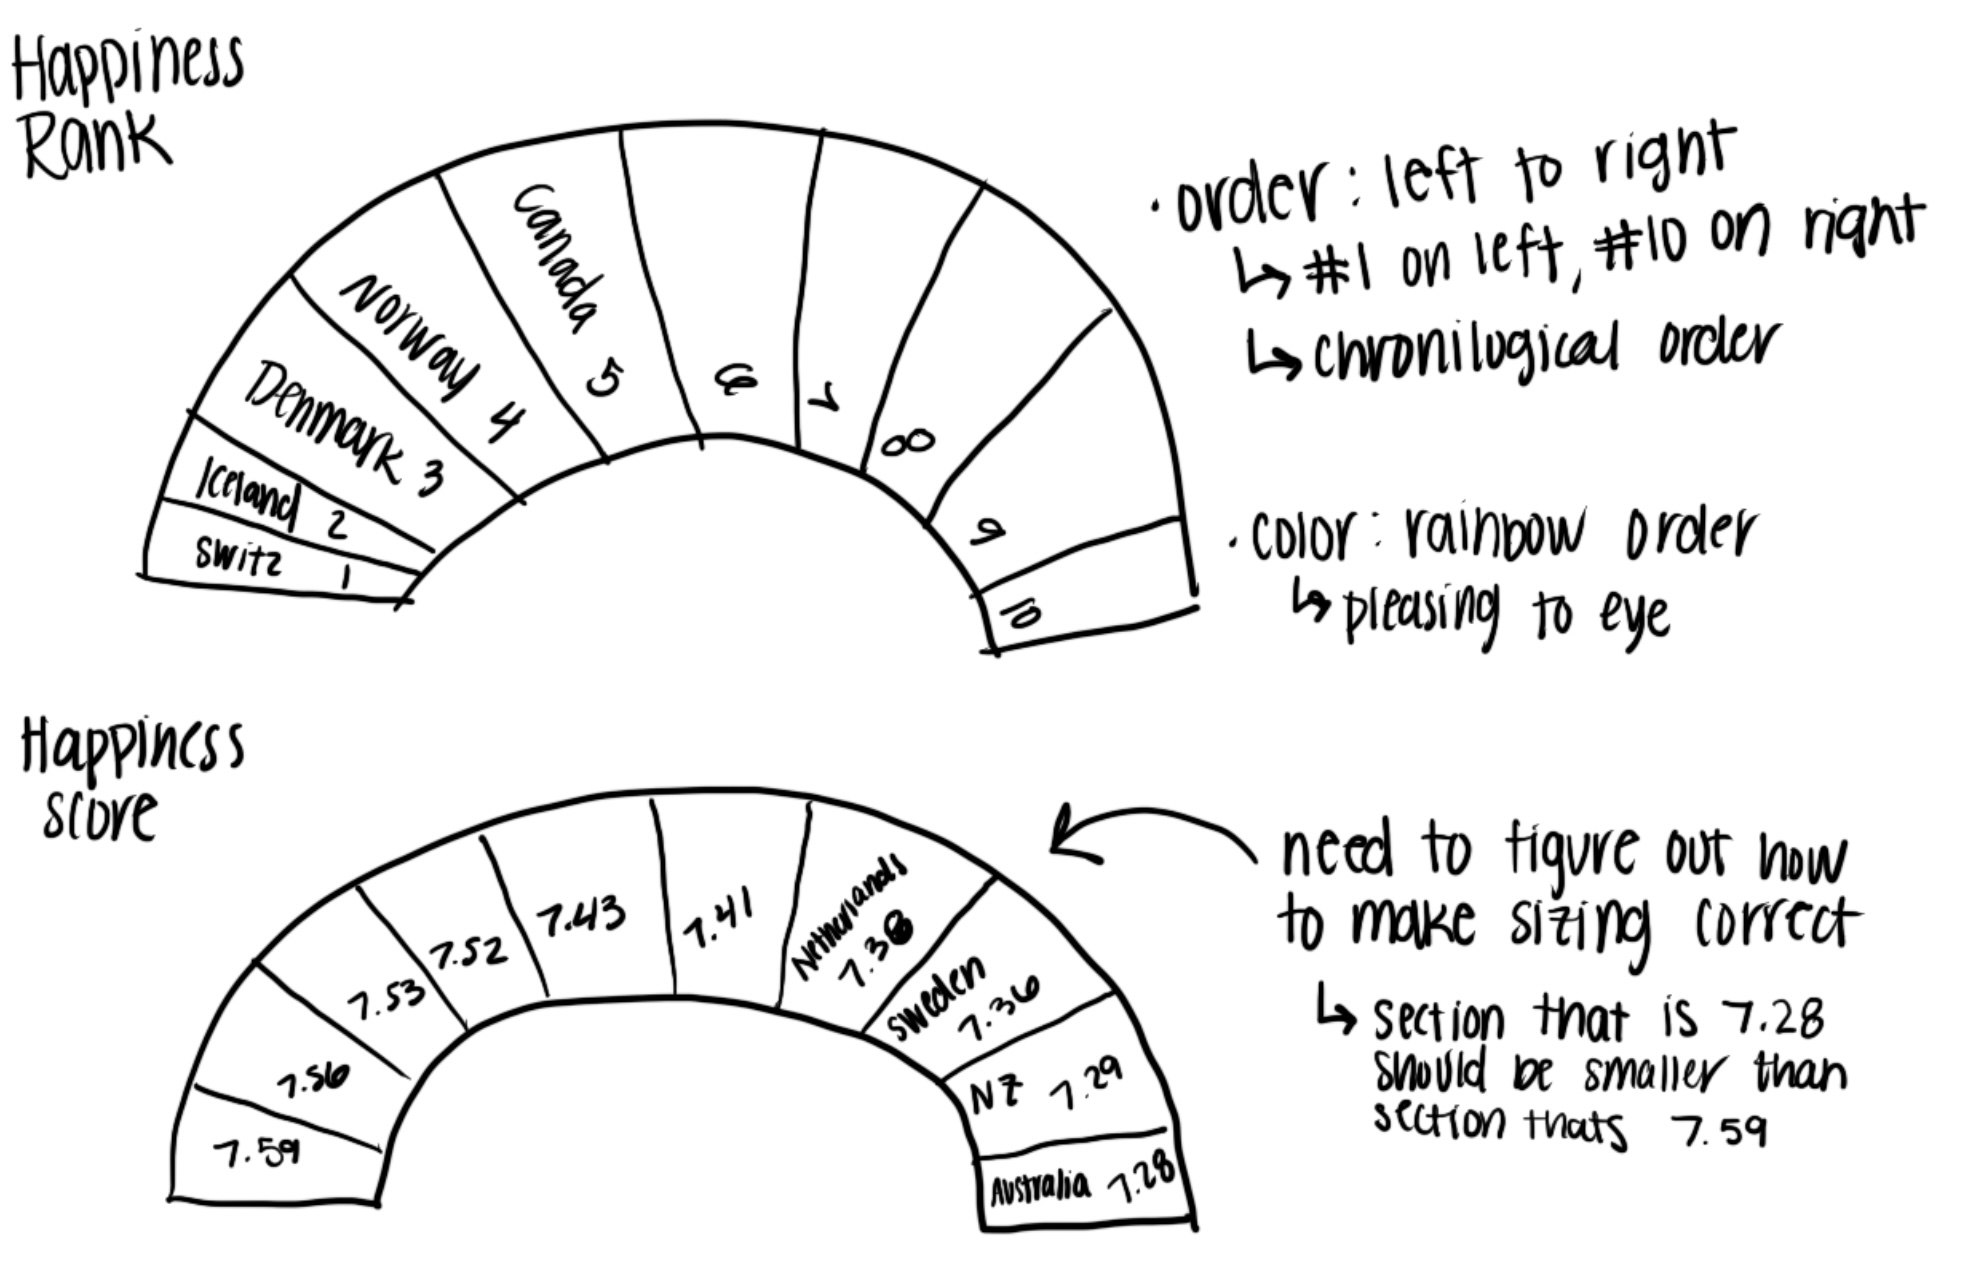 Happiness
Rank
switz 1
Iceland 2
Denmark 3
Norway 4
Canada 5
6
7
8
9
10
• order: left to right
↳ #1 on left, #10 on right
↳ chronilogical order
• color: rainbow order
↳ pleasing to eye
Happiness
score
7.59
7.56
7.53
7.52
7.43
7.41
Netherlands
7.38
Sweden
7.36
NZ 7.29
Australia 7.28
need to figure out how
to make sizing correct
↳ section that is 7.28
should be smaller than
section thats 7.59